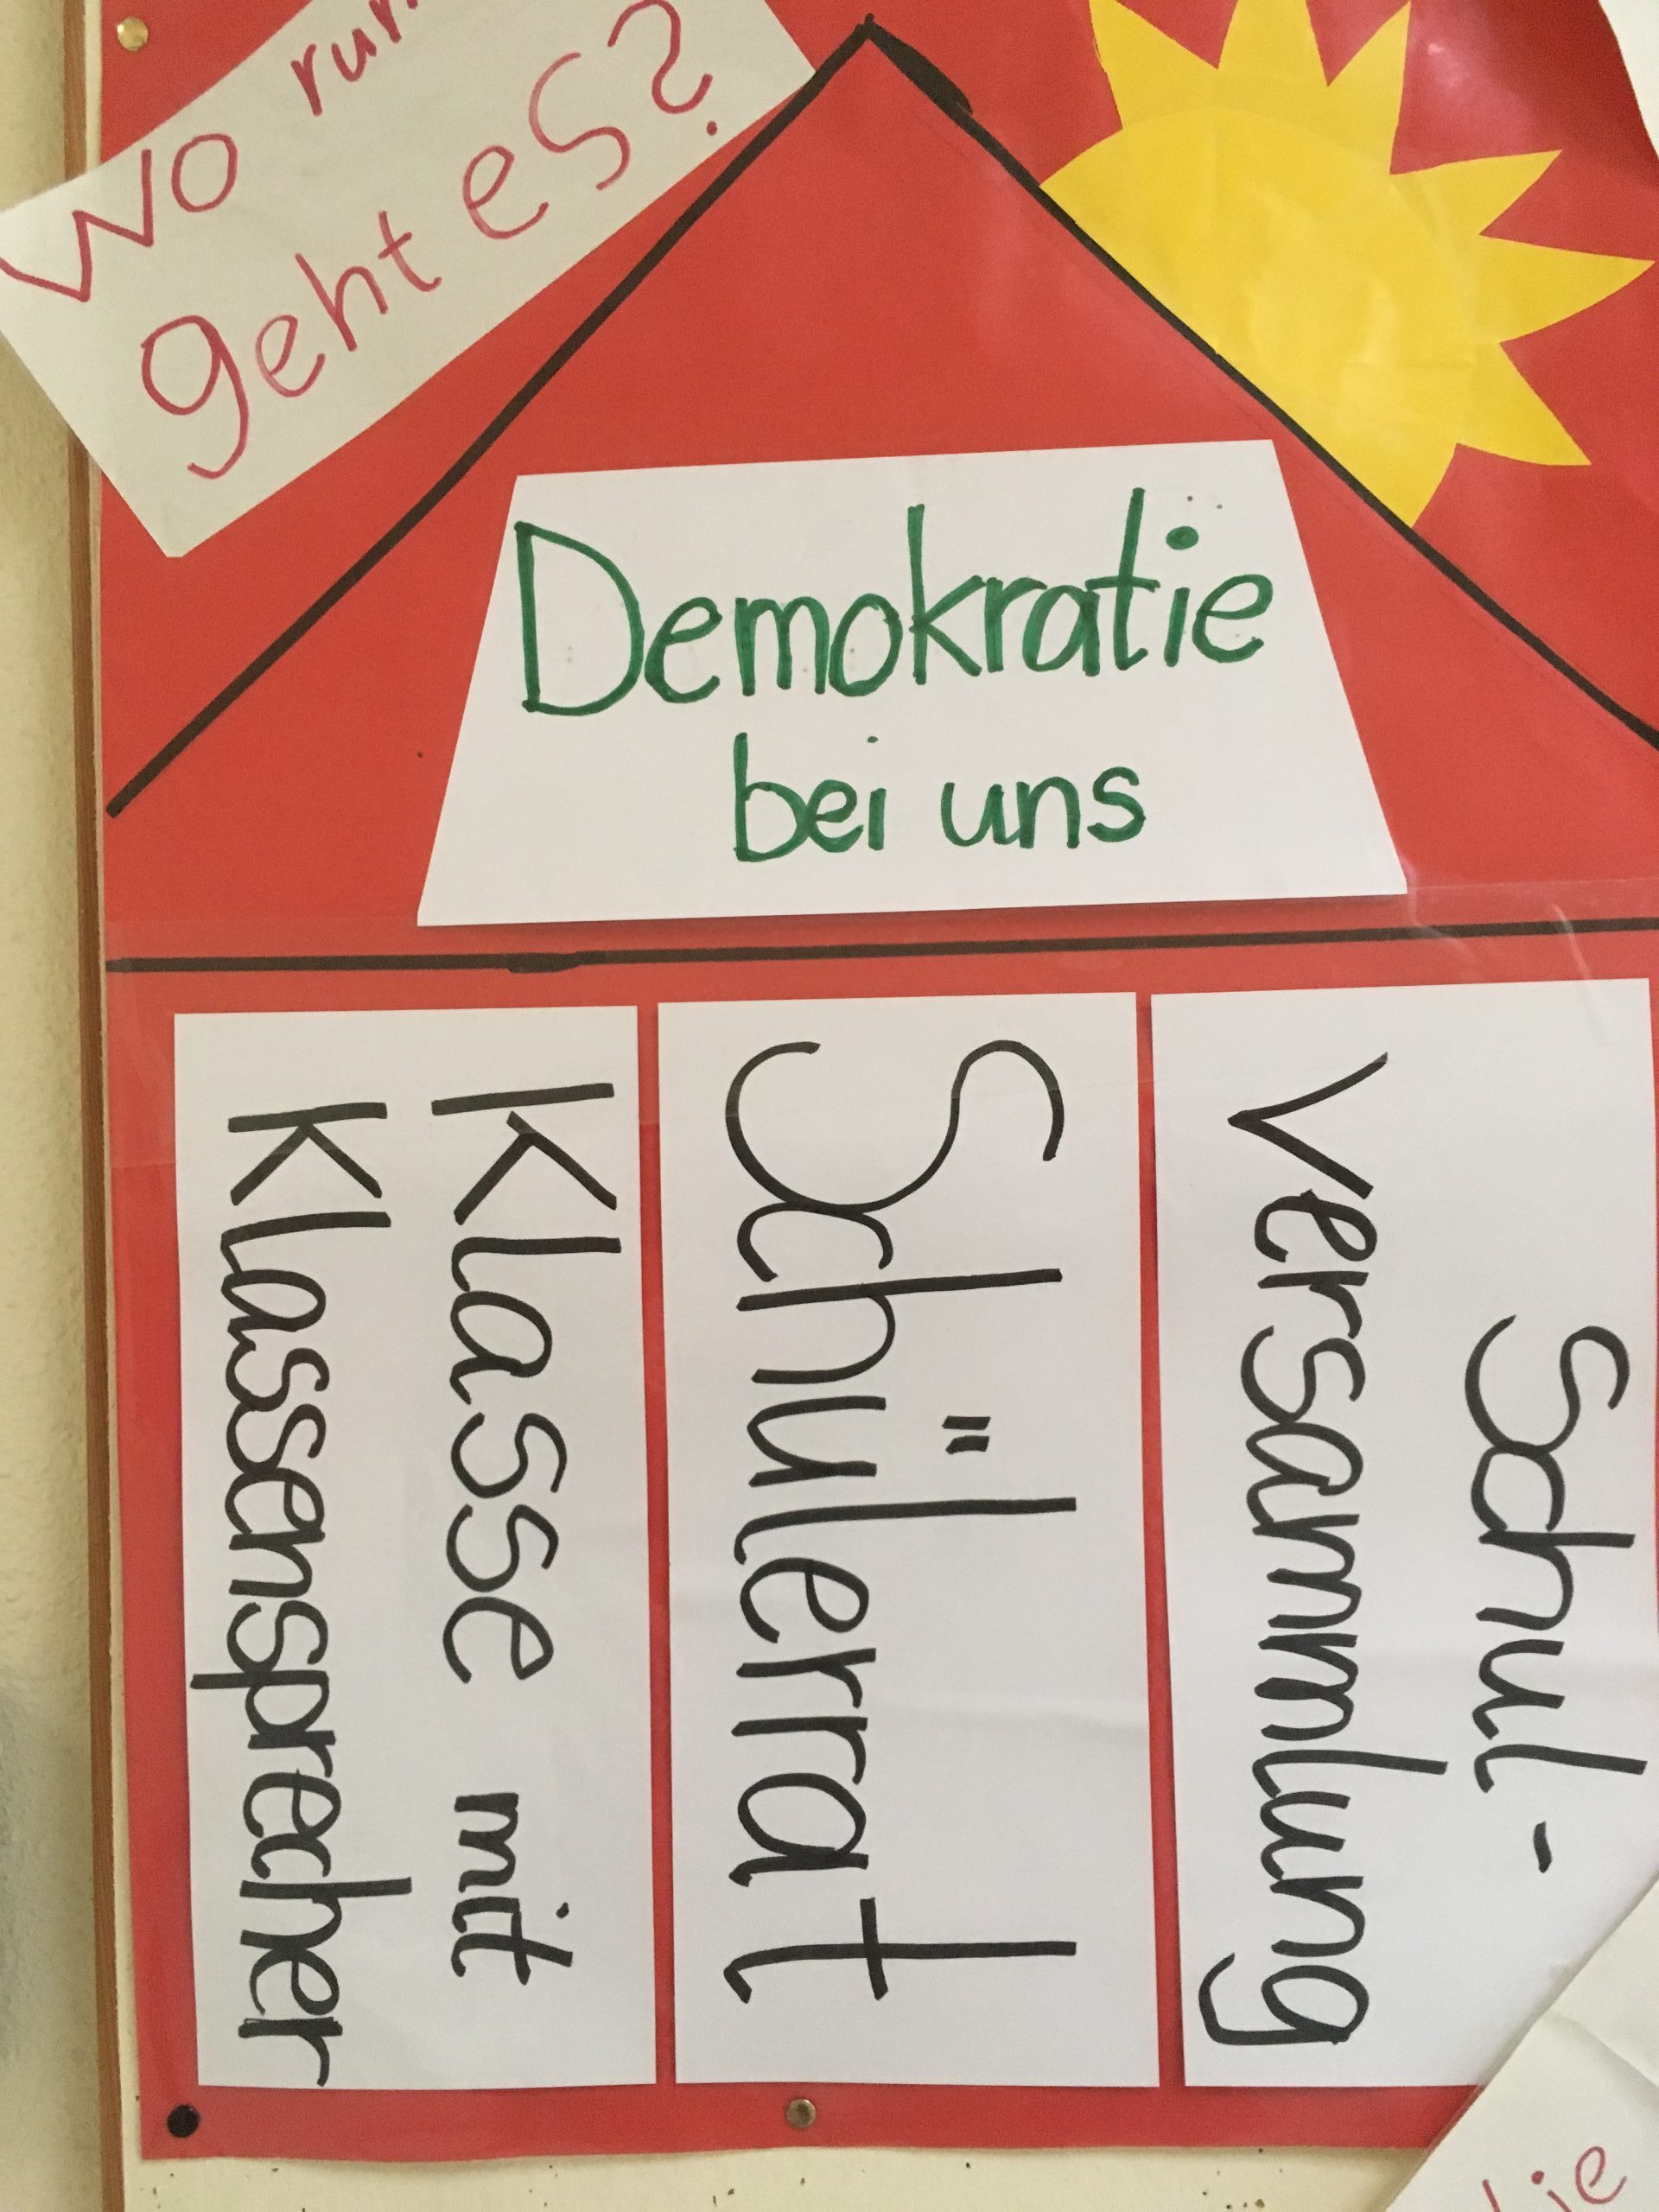 Wo rum
geht es?
Demokratie
bei uns
Klasse mit
Klassensprecher
Schülerrat
Schul-
versammlung